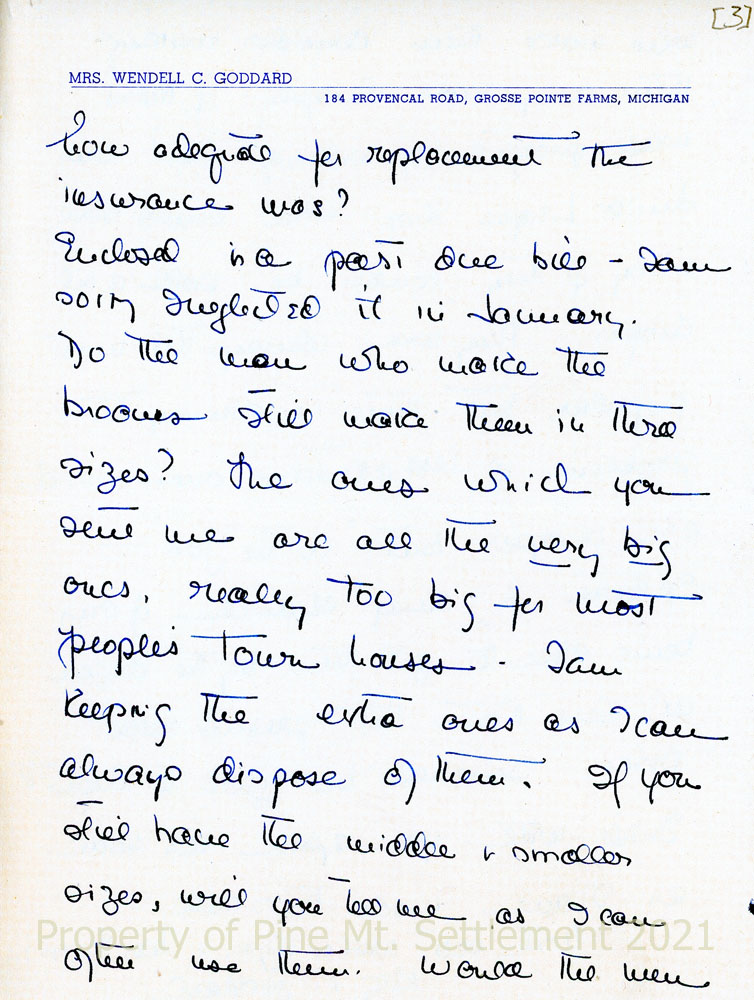 [3]
MRS. WENDELL C. GODDARD
184 PROVENCAL ROAD, GROSSE POINTE FARMS, MICHIGAN
how adequate for replacement the
insurance was?
Enclosed is a past due bill - I am
sorry I neglected it in January.
Do the men who make the
brooms still make them in three
sizes? The ones which you
sent me are all the very big
ones, really too big for most
people's town houses - I am
keeping the extra ones as I can
always dispose of them. If you
still have the middle + smaller
sizes, will you tell me as I can
often use them. Would the men
Property of Pine Mt. Settlement 2021